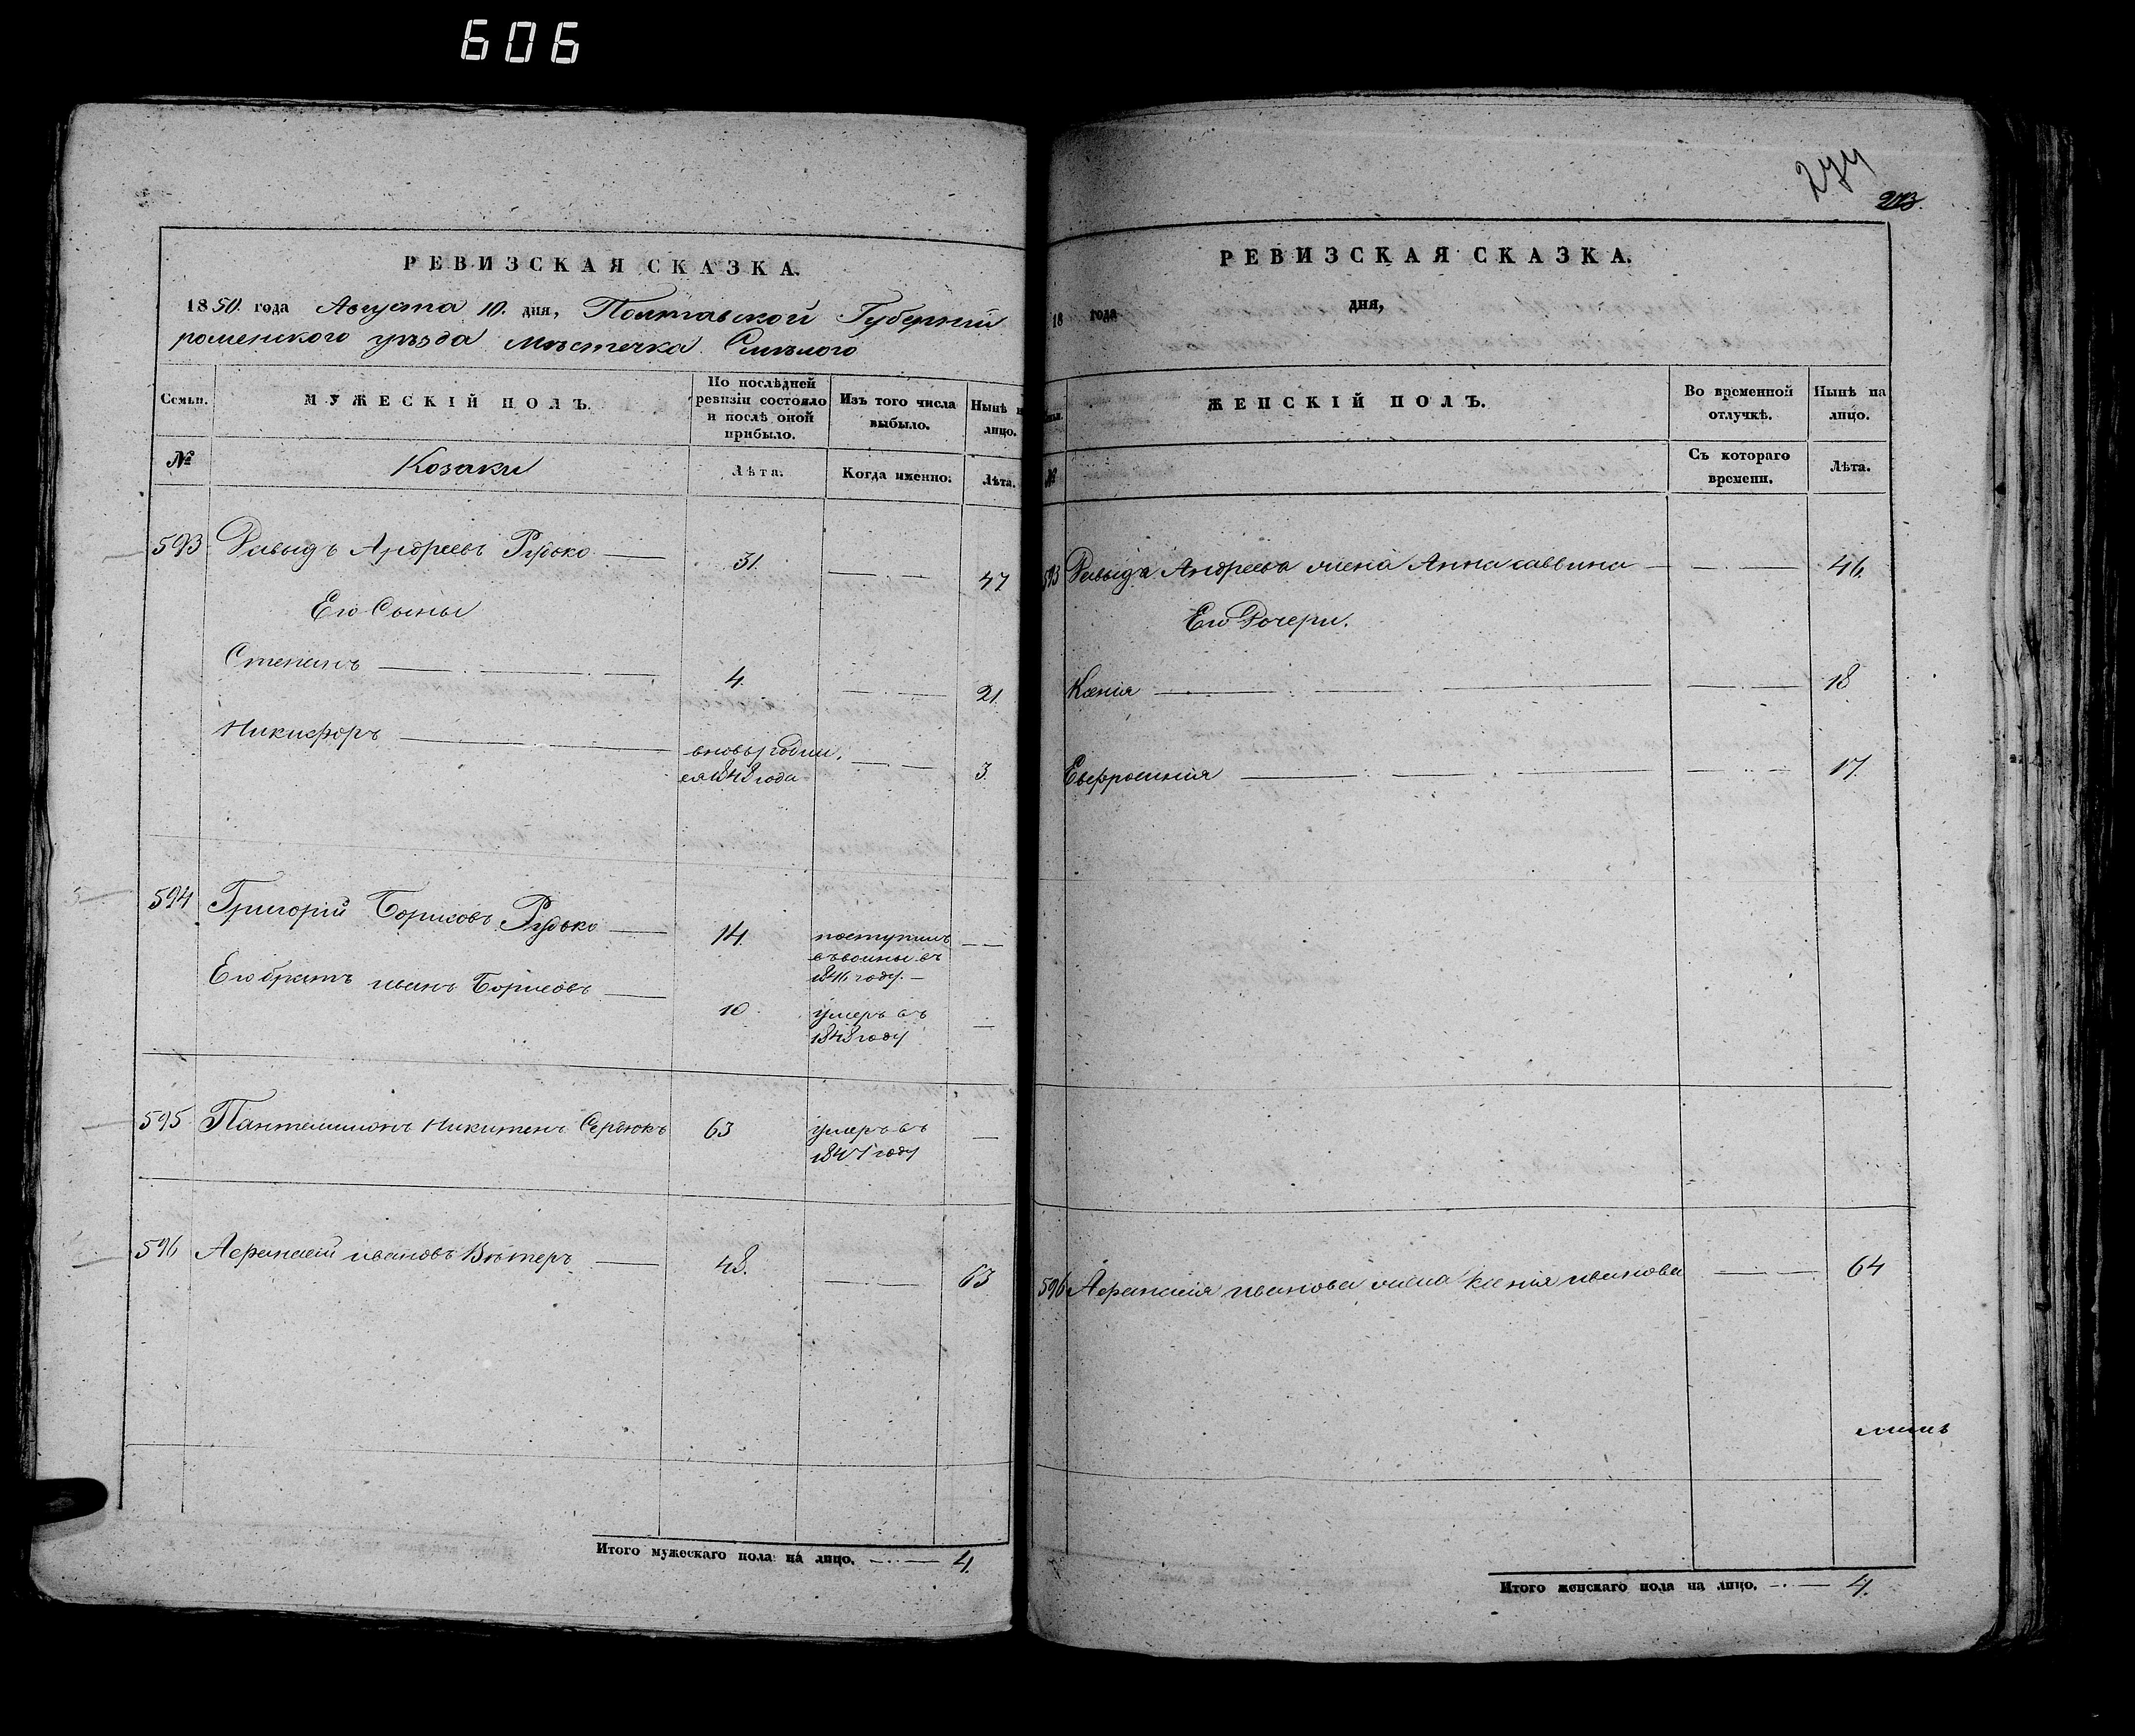 606
274
203.
РЕВИЗСКАЯ СКАЗКА.
1850. года Августа 10. дня, Полтавской Губернии
роменского уѣзда Мѣстечка Смѣлого
Семьи.
МУЖЕСКІЙ ПОЛЪ.
По послѣдней
ревизіи состояло
и послѣ оной
прибыло.
Изъ того числа
выбыло.
Нынѣ н
лицо.
№
Козаки
Лѣта.
Когда именно.
Лѣта.
593 Давыдъ Андреевъ Рудько 31. 47
Его Сыны
Степанъ 4. 21.
Никифоръ вновь родил.
ся 1848 года 3.
594 Григорій Борисовъ Рудько 14. поступилъ
въ воины въ
1846 году.
Его братъ иванъ Борисовъ 10 умеръ въ
1848 году
595 Пантелимонъ Никитенъ Сердюкъ 63 умеръ въ
1847 году
596 Афанасій ивановъ Вѣтеръ 48. 63
Итого мужескаго пола на лицо. 4.
РЕВИЗСКАЯ СКАЗКА.
18 года дня,
ЖЕНСКІЙ ПОЛЪ.
Во временной
отлучкѣ.
Нынѣ на
лицо.
№
Съ котораго
времени.
Лѣта.
593 Давыда Андреева жена Анна саввина 46.
Его Дочери.
Ксенія 18
Евфросинія 17.
596 Афанасія иванова жена Ксенія иванова 64
Итого женскаго пола на лицо. 4.